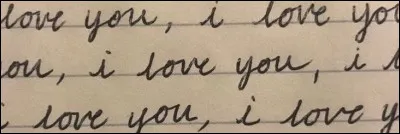 love you, i love you
ou, i love you, i l
i love you, i love y